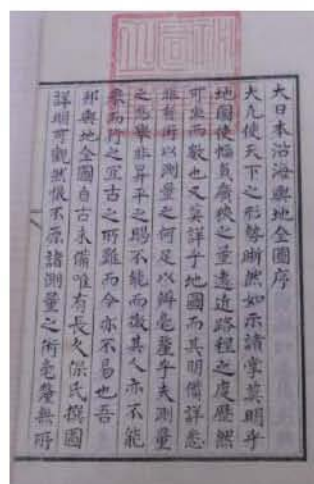 大日本沿海輿地全圖序
大凡使天下之形勢晰然如示諸掌莫明乎
地圖使幅員廣狹之量遠近路程之度歷然
可坐而數也又莫詳乎地圖而其明備詳悉
非有術以測量之何足以辨毫釐乎夫測量
之非昇平之賜不能而微其人亦不能
而行之宜古之所難而今亦不易也吾
邦輿地全圖自古未備唯有長久保氏撰圖
詳明可觀然恨不原諸測量之術毫釐無所